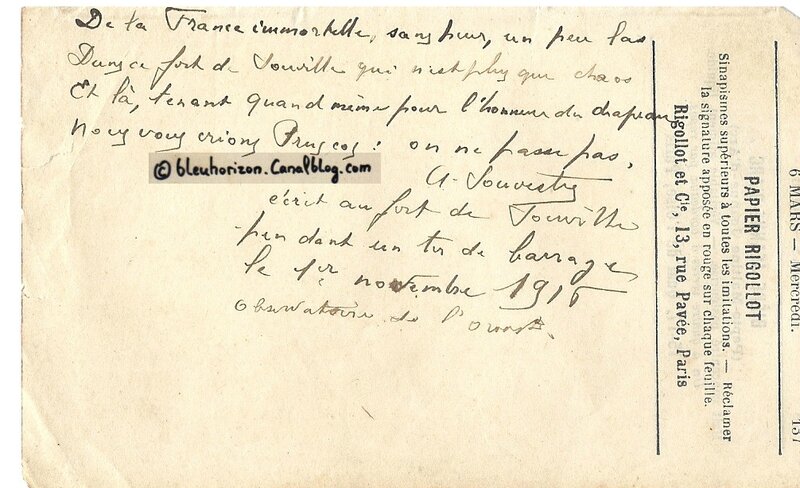 De la France immortelle, sans peur, un peu las
Dans ce fort de Souville qui n'est plus que chaos
Et là, tenant quand même pour l'honneur du drapeau
Nous vous crions Pruscos : on ne passe pas.
© bleuhorizon.Canalblog.com
A. Souvestre
écrit au fort de Souville
pendant un tir de barrage
le 1er novembre 1916
Observatoire de l'ouest.
6 MARS — Mercredi. 137
PAPIER RIGOLLOT
Sinapismes supérieurs à toutes les imitations. — Réclamer
la signature apposée en rouge sur chaque feuille.
Rigollot et Cie, 13, rue Pavée, Paris